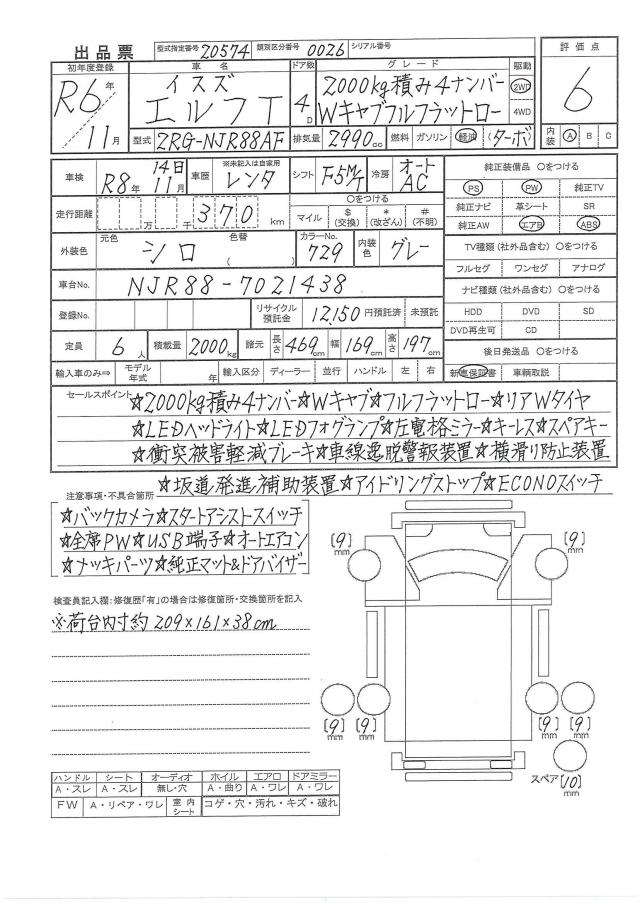 出品票 型式指定番号 20574 類別区分番号 0026 シリアル番号
初年度登録 車名 ドア数 グレード 駆動 評価点
R6年 イスズ 2000kg積み4ナンバー 2WD 6
11月 エルフT 4D Wキャブフルフラットロー 4WD
型式 2RG-NJR88AF 排気量 2990cc 燃料 ガソリン 軽油 (ターボ) 内装 A B C
車検 R8年 11月 14日 車歴 ※未記入は自家用 レンタ シフト F5M/T 冷房 オートAC 純正装備品 〇をつける
PS PW 純正TV
走行距離 万 千 370 km 〇をつける マイル $(交換) *(改ざん) #(不明) 純正ナビ 革シート SR
純正AW エアB ABS
外装色 元色 シロ 色替 ( ) カラーNo. 729 内装色 グレー TV種類(社外品含む)〇をつける
フルセグ ワンセグ アナログ
車台No. NJR88-7021438 ナビ種類(社外品含む)〇をつける
登録No. リサイクル預託金 12,150 円預託済 未預託 HDD DVD SD
DVD再生可 CD
定員 6人 積載量 2000kg 諸元 長さ 469cm 幅 169cm 高さ 197cm 後日発送品 〇をつける
輸入車のみ⇒ モデル年式 年 輸入区分 ディーラー 並行 ハンドル 左 右 新車保証書 車輌取説
セールスポイント ☆2000kg積み4ナンバー☆Wキャブ☆フルフラットロー☆リアWタイヤ
☆LEDヘッドライト☆LEDフォグランプ☆左電格ミラー☆キーレス☆スペアキー
☆衝突被害軽減ブレーキ☆車線逸脱警報装置☆横滑り防止装置
☆坂道発進補助装置☆アイドリングストップ☆ECONOスイッチ
注意事項・不具合箇所
☆バックカメラ☆スタートアシストスイッチ
☆全席PW☆USB端子☆オートエアコン
☆メッキパーツ☆純正マット&ドアバイザー
[9]mm [9]mm
検査員記入欄:修復歴「有」の場合は修復箇所・交換箇所を記入
※荷台内寸約209×161×38cm
[9]mm [9]mm [9]mm [9]mm
スペア[10]mm
ハンドル シート オーディオ ホイル エアロ ドアミラー
A・スレ A・スレ 無し・穴 A・曲り A・ワレ A・ワレ
FW A・リペア・ワレ 室内シート コゲ・穴・汚れ・キズ・破れ